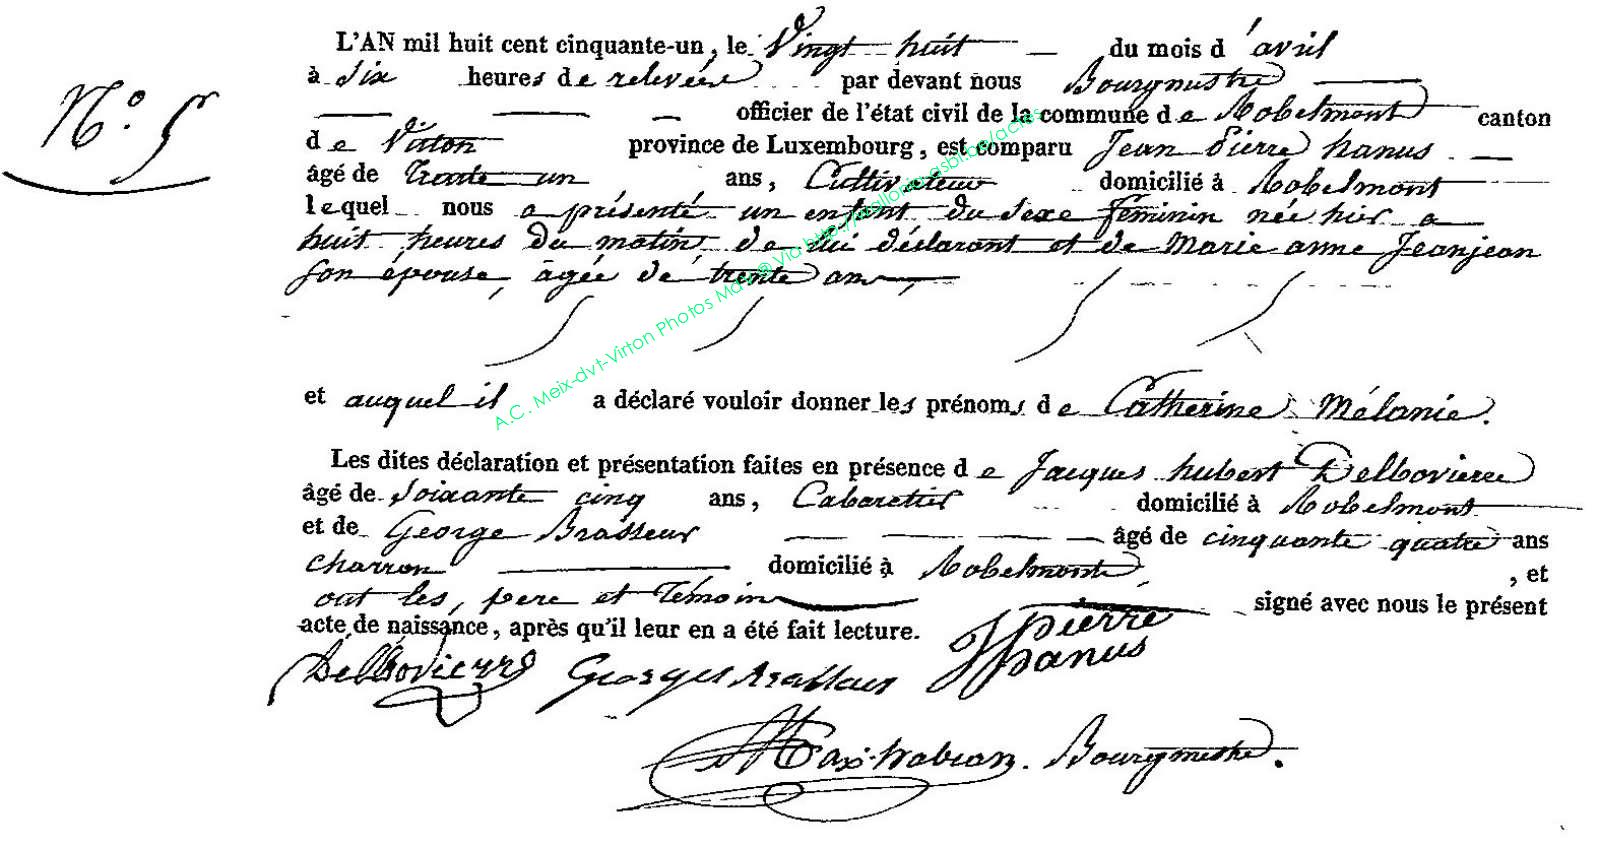 L'AN mil huit cent cinquante-un, le Vingt huit du mois d'avril
N.º 5
à Six heures de relevée par devant nous Bourgmestre
officier de l'état civil de la commune de Robelmont canton
de Virton province de Luxembourg, est comparu Jean Pierre hanus
âgé de Trente un ans, Cultivateur domicilié à Robelmont
lequel nous a présenté un enfant du Sexe féminin née hier a
huit heures du matin, de lui déclarant et de Marie anne Jeanjean
son épouse, âgée de trente ans,
et auquel il a déclaré vouloir donner les prénoms de Catherine Mélanie.
Les dites déclaration et présentation faites en présence de Jacques hubert Delboviere
âgé de Soixante cinq ans, Cabaretier domicilié à Robelmont
et de George Brasseur âgé de cinquante quatre ans
charron domicilié à Robelmont, , et
ont les, pere et Témoins signé avec nous le présent
acte de naissance, après qu'il leur en a été fait lecture.
Delbovierre Georges Brasseur JPierre hanus
Bourgmestre.
A.C. Meix-dvt-Virton Photos Mary® Via http://wallonia-asbl.be/actes